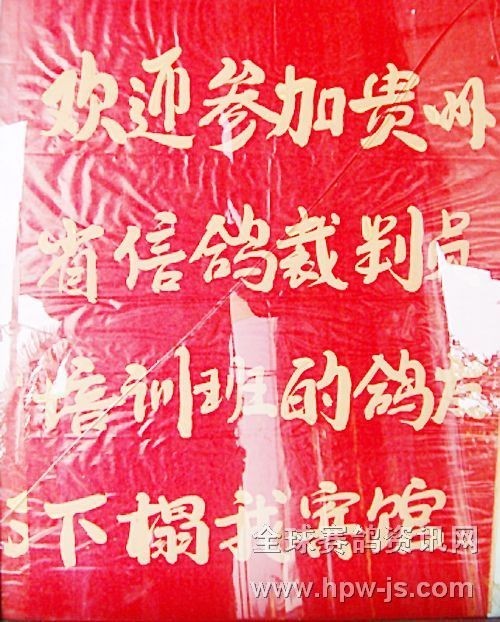 欢迎参加贵州
省信鸽裁判员
培训班的鸽友
下榻我宾馆
全球赛鸽资讯网
www.hpw-js.com